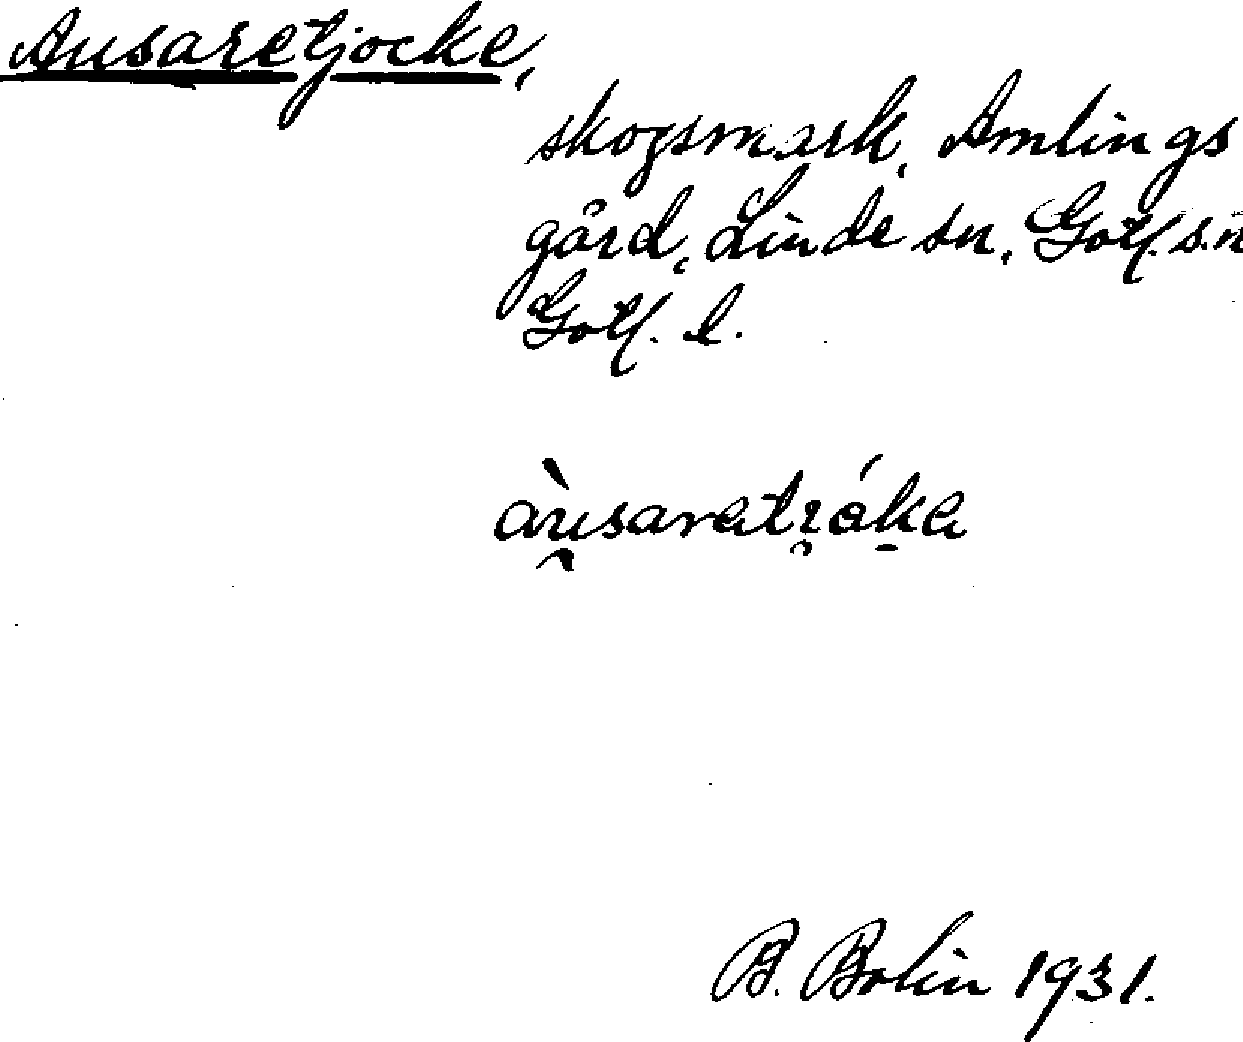 Ausaretjocke,
skogsmark, Amlings
gård, Linde sn, Gotl. s. n
Gotl. l.
B. Bolin 1931.